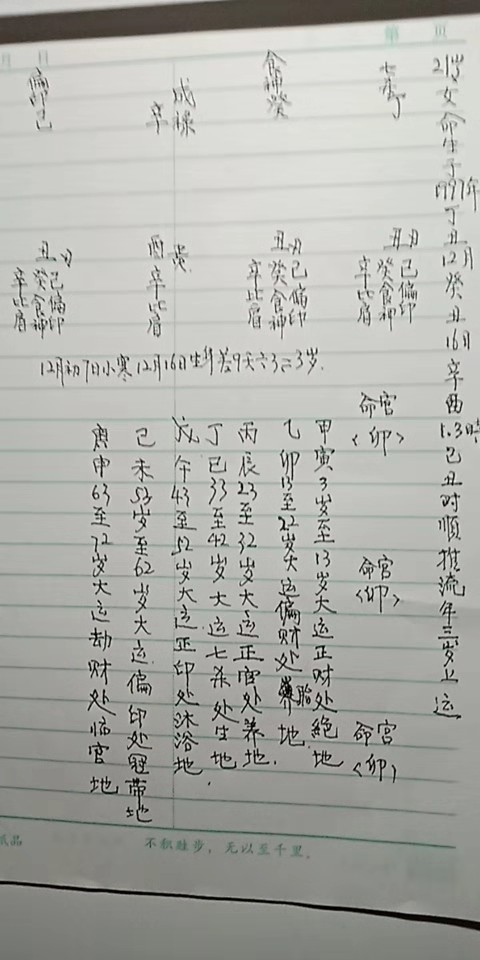 第 页
月 日
21岁女命生于1997年丁丑12月癸丑16日辛酉1.3時己丑时順推流年三岁上运
七杀丁
食神癸
戌禄
辛
偏印己
丑刃
己偏印
癸食神
辛比肩
丑刃
己偏印
癸食神
辛比肩
酉
辛比肩
丑刃
己偏印
癸食神
辛比肩
12月初7日小寒12月16日生
命宫
<卯>
命宫
<卯>
命宫
<卯>
甲寅3岁至13岁大运正财处絕地
乙卯13至22岁大运偏财处胎地.
丙辰23至32岁大运正官处养地.
丁巳33至42岁大运七杀处生地.
戊午43至52岁大运正印处沐浴地.
己未53岁至62岁大运偏印处冠帶地
庚申63至72岁大运劫财处临官地
纸品
不积跬步，无以至千里。